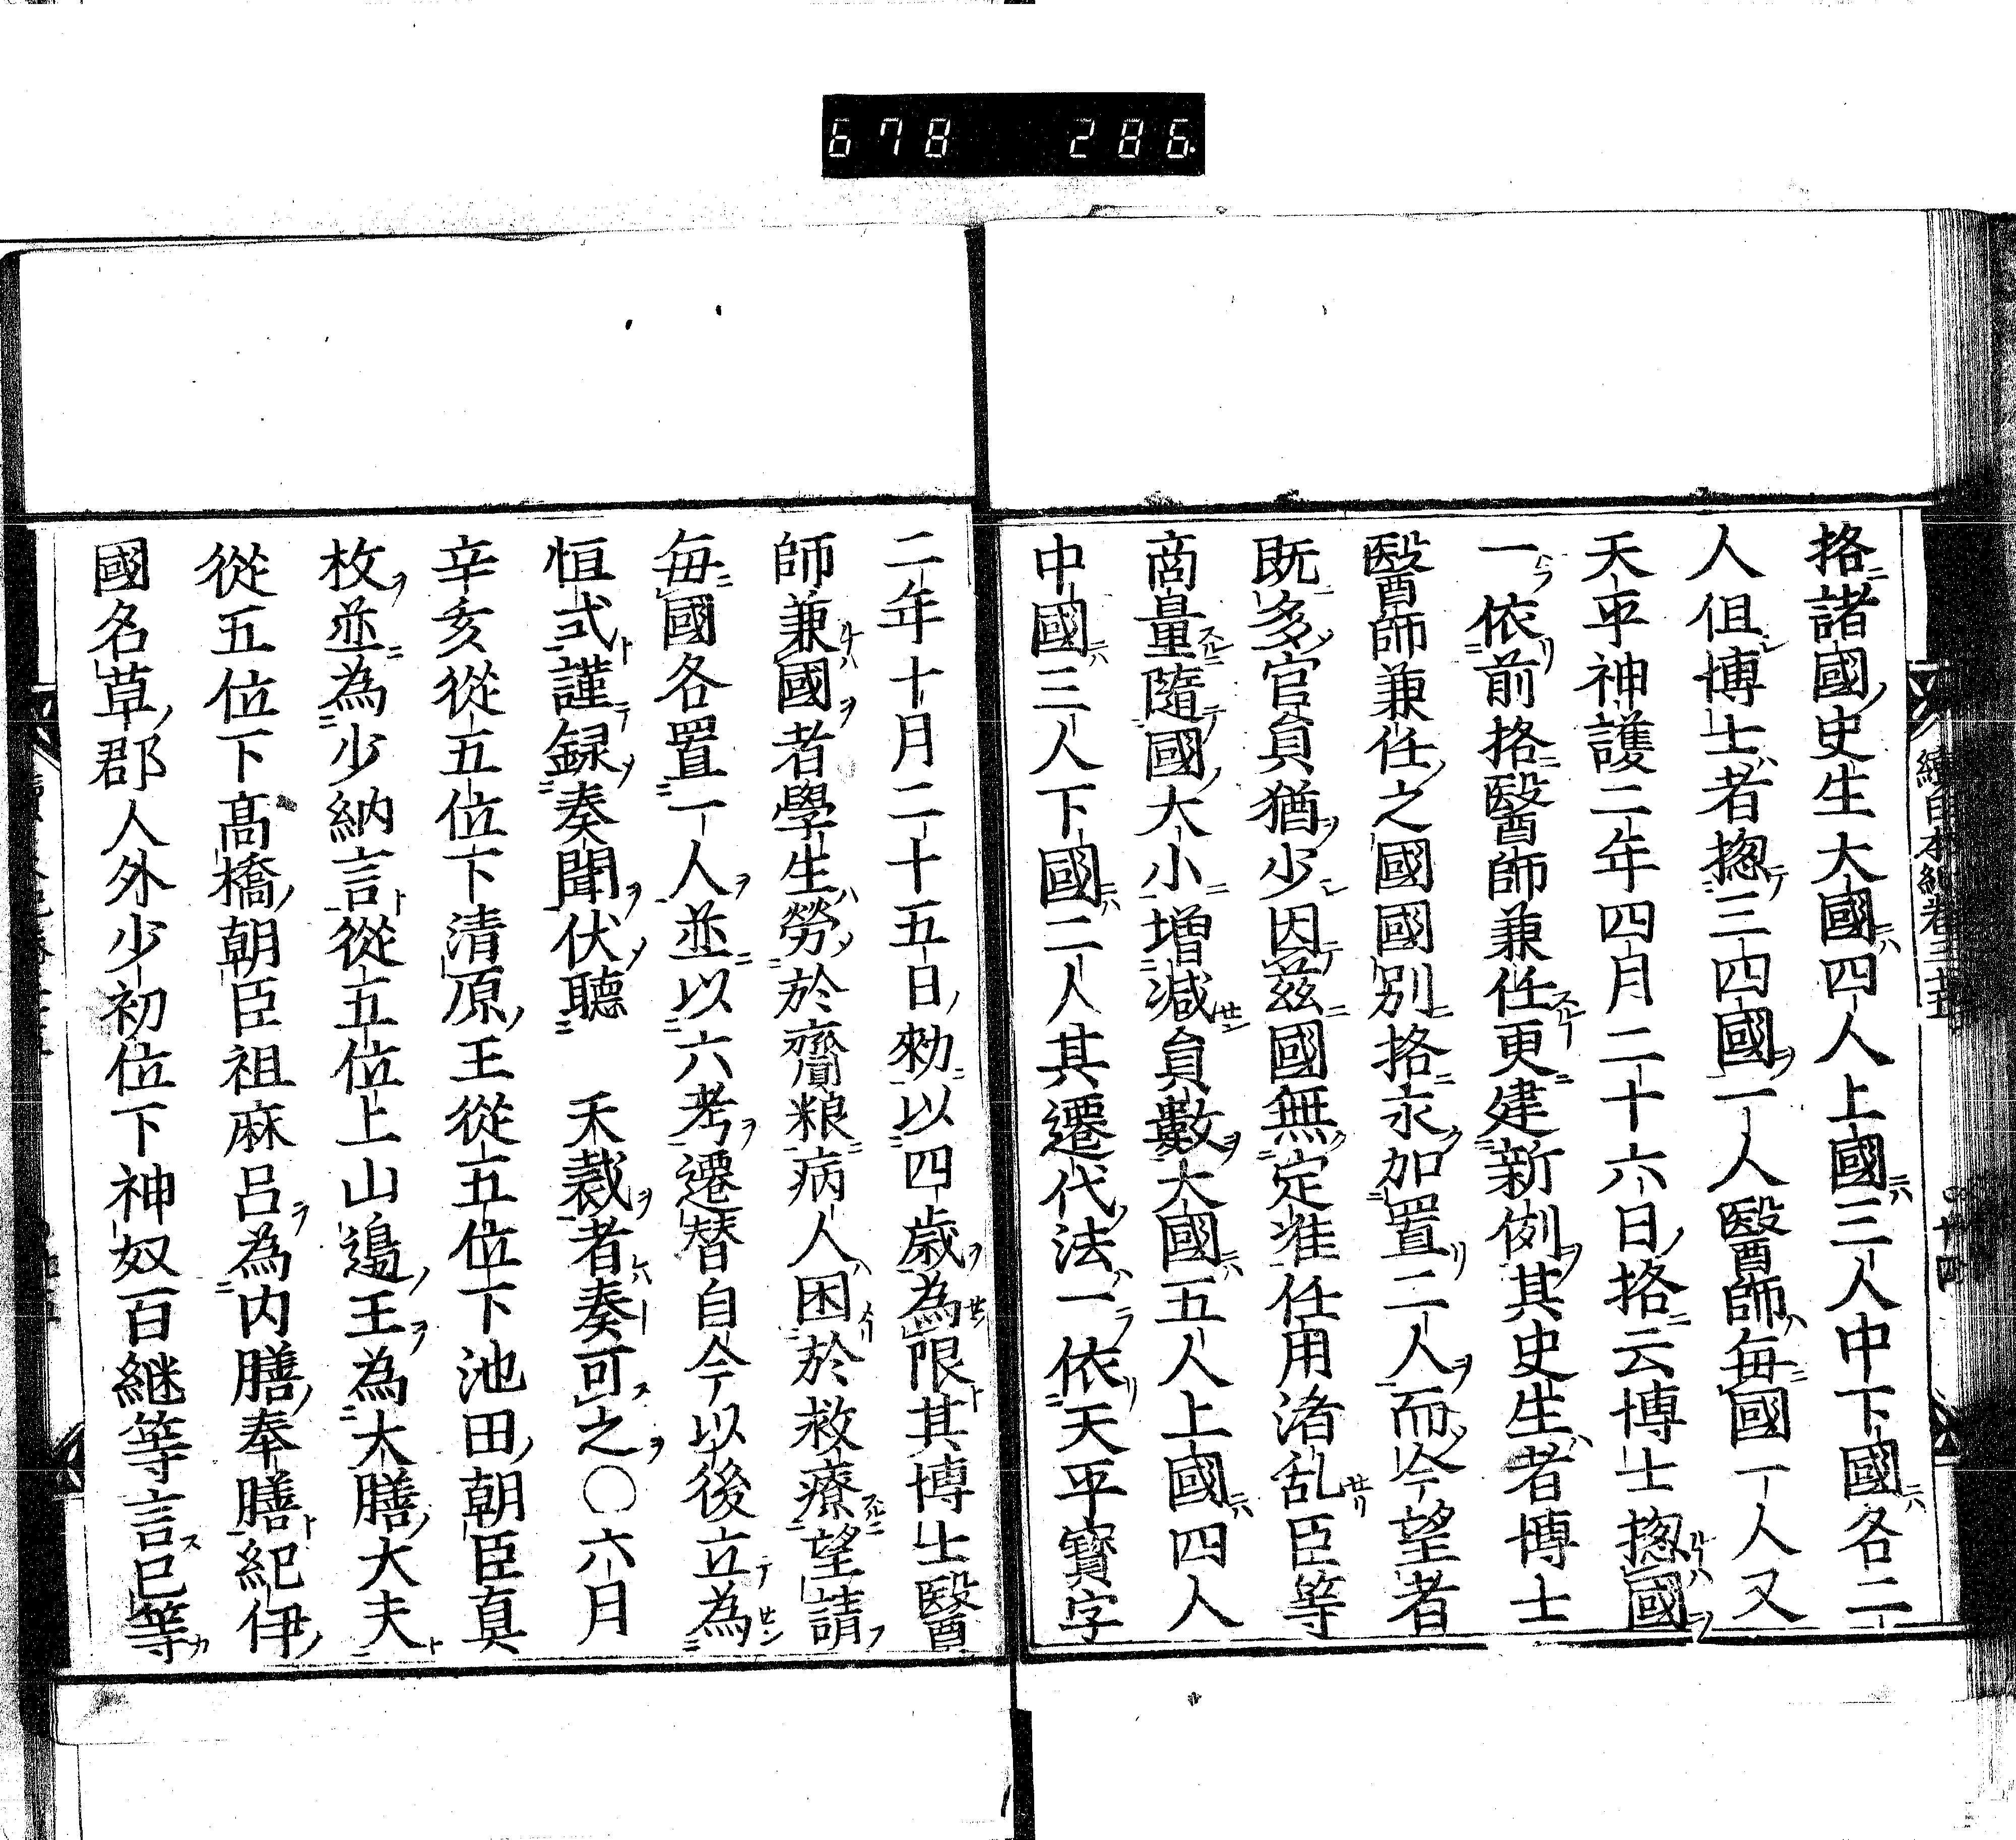 678 286
挌諸國史生大國四人上國三人中下國各二
人但博士者揔三四國一人醫師每國一人又
天平神護二年四月二十六日挌云博士揔國
一依前挌醫師兼任更建新例其史生者博士
醫師兼任之國國別挌永加置二人而今望者
既多官員猶少因茲國無定准任用渚乱臣等
商量隨國大小增减員數大國五人上國四人
中國三人下國二人其遷代法一依天平寶字
二年十月二十五日勑以四歲為限其博士醫
師兼國者學生勞於齎粮病人困於救療望請
每國各置一人並以六考遷替自今以後立為
恒式謹録奏聞伏聽 天裁者奏可之○六月
辛亥從五位下清原王從五位下池田朝臣真
枚並為少納言從五位上山邊王為大膳大夫
從五位下高橋朝臣祖麻呂為内膳奉膳紀伊
國名草郡人外少初位下神奴百継等言巳等